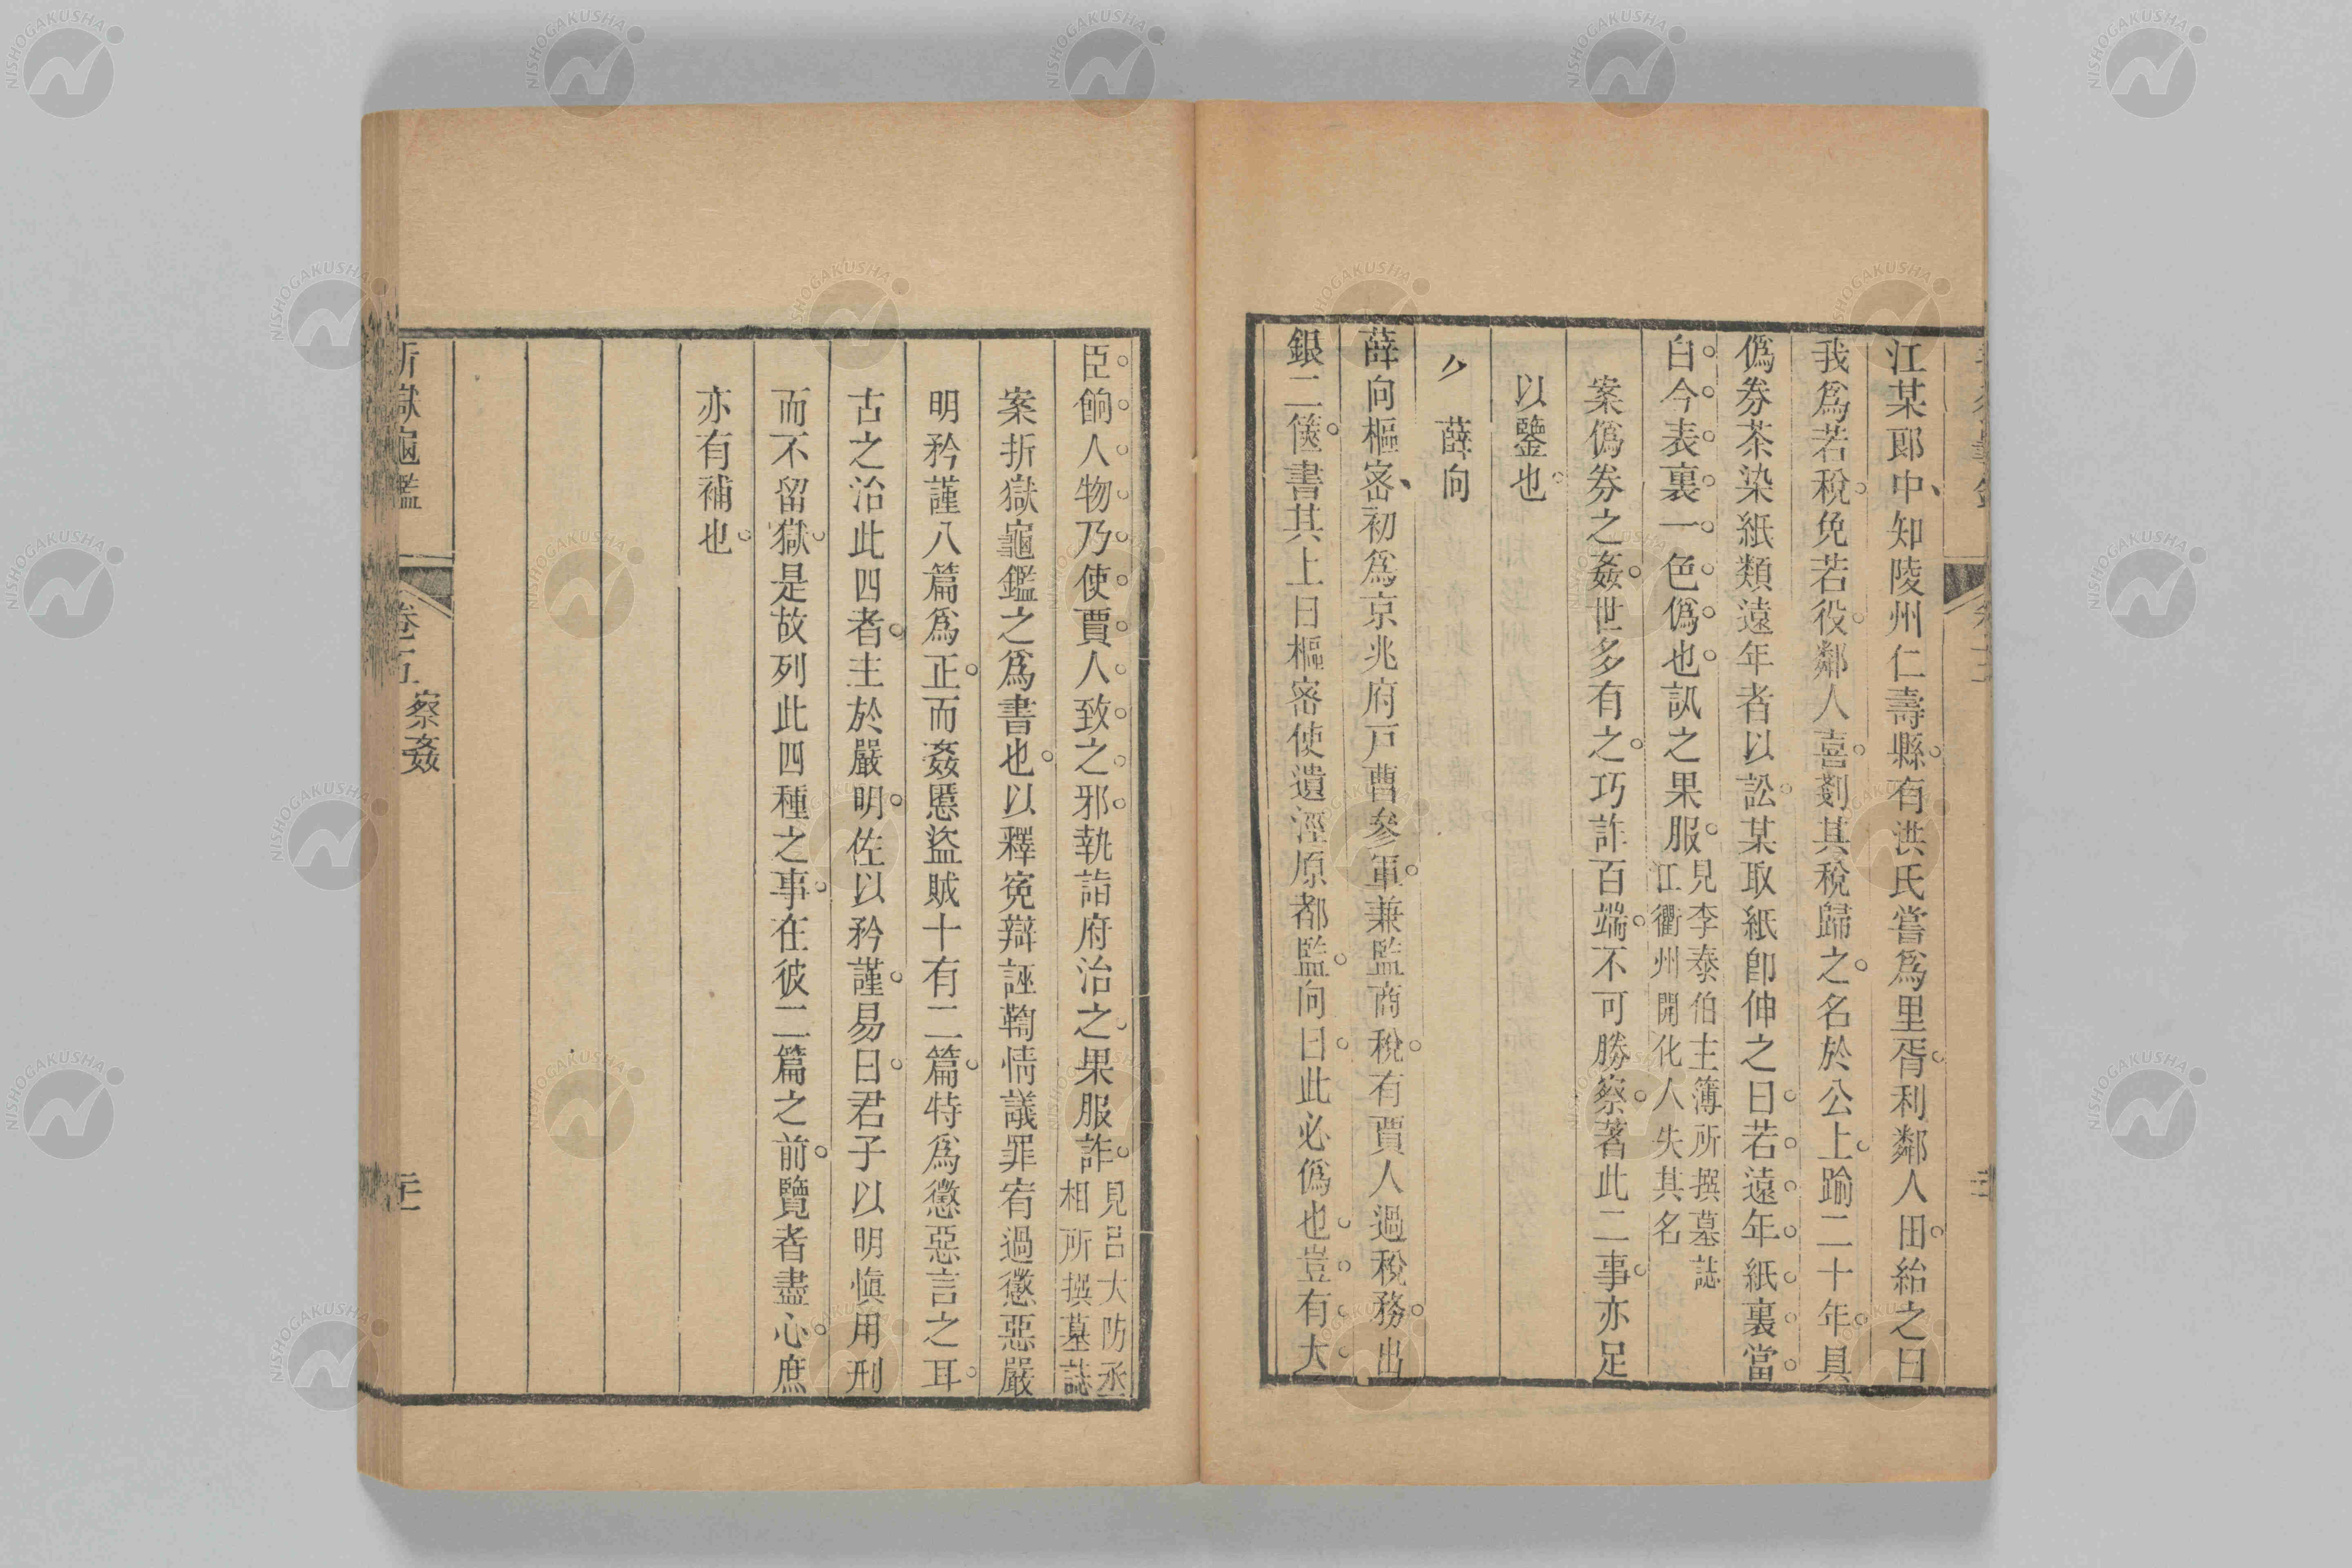 江某郎中、知陵州仁壽縣。有洪氏嘗爲里胥。利鄰人田。紿之曰
我爲若稅。免若役。鄰人喜。剗其稅歸之。名於公上。踰二十年。具
僞券茶染紙類遠年者以訟。某取紙卽伸之曰。若。遠。年。紙。裏。當。
白。今。表。裏。一。色。僞。也。訊之果服。見李泰伯主簿所撰墓誌
江衢州開化人失其名
案僞券之姦。世多有之。巧詐百端。不可勝察。著此二事。亦足
以鑒也。
薛向
薛向樞密、初爲京兆府戸曹參軍。兼監商稅。有賈人過稅務。出
銀二篋。書其上曰樞密使遺涇原都監。向曰。此必僞也。豈。有。大。
臣。餉。人。物。乃。使。賈。人。致。之。邪。執詣府治之。果服詐。見呂大防丞
相所撰墓誌
案折獄龜鑑之爲書也。以釋寃辯誣鞫情議罪宥過懲惡嚴
明矜謹八篇爲正。而姦慝盜賊十有二篇。特爲懲惡言之耳。
古之治此四者。主於嚴明。佐以矜謹。易曰。君子以明愼用刑
而不留獄。是故列此四種之事。在彼二篇之前。覽者盡心。庶
亦有補也。
折獄龜鑑
卷五
察姦
NISHOGAKUSHA